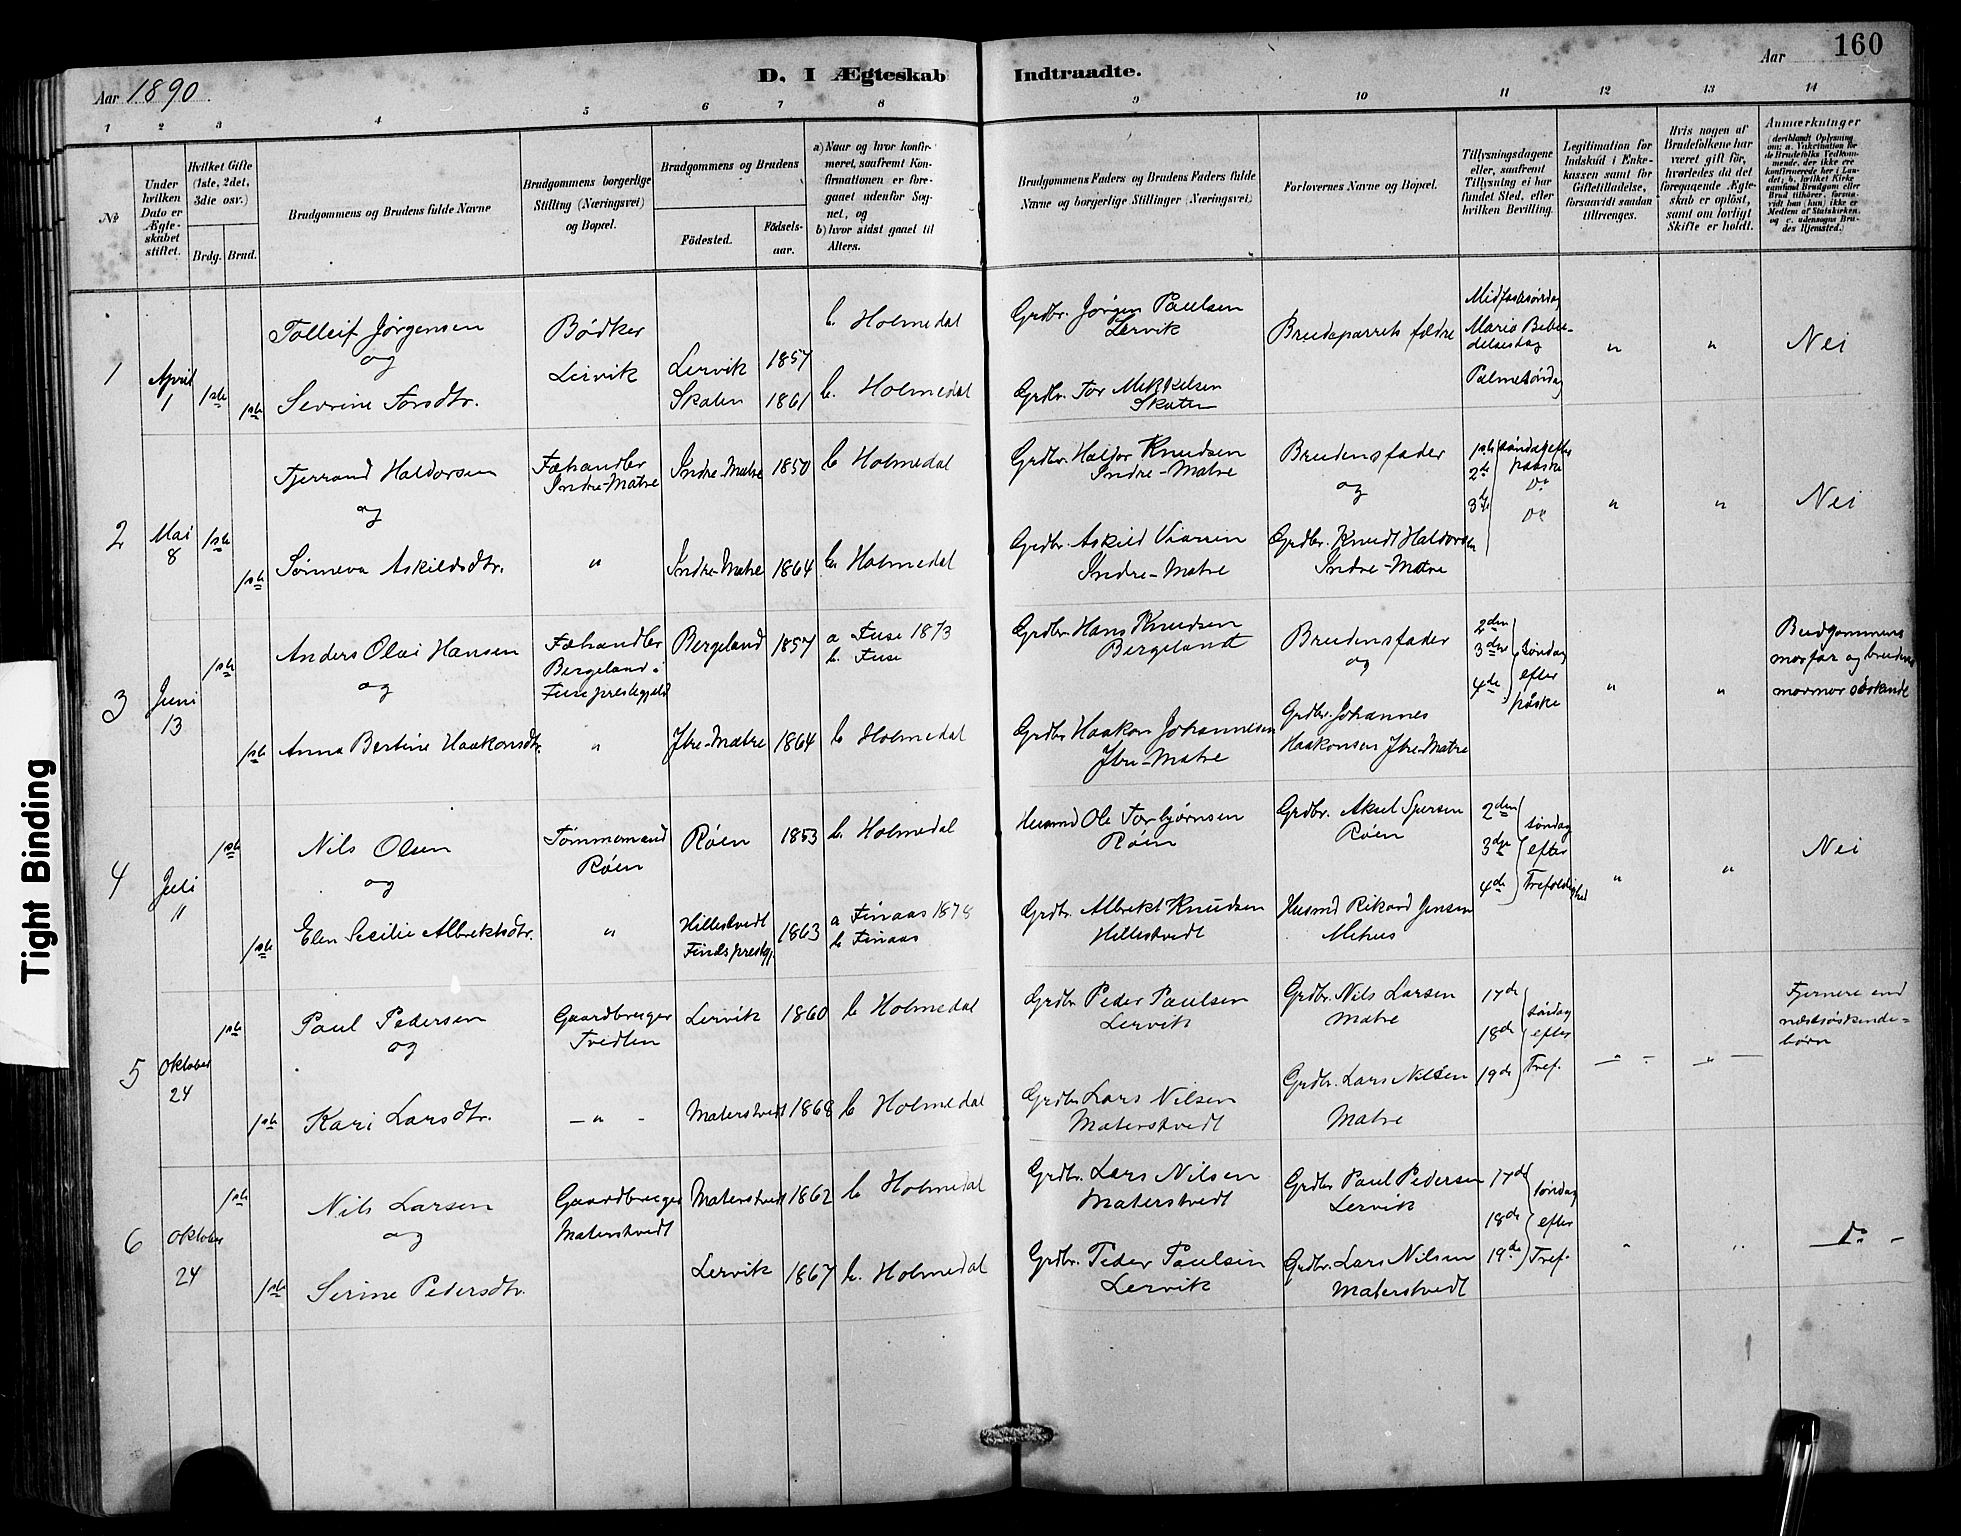 Aar 1890.
D. I Ægteskab Indtraadte.
Aar
160
1 2 3 4 5 6 7 8 9 10 11 12 13 14
№
Under hvilken Dato er Ægteskabet stiftet.
Hvilket Gifte (1ste, 2det, 3die osv.)
Brdg. Brud.
Brudgommens og Brudens fulde Navne
Brudgommens borgerlige Stilling (Næringsvei) og Bopæl.
Brudgommens og Brudens
Fødested.
Fødselsaar.
a) Naar og hvor konfirmeret, saafremt Konfirmationen er foregaaet udenfor Sognet, og
b) hvor sidst gaaet til Alters.
Brudgommens Faders og Brudens Faders fulde Navne og borgerlige Stillinger (Næringsvei)
Forlovernes Navne og Bopæl.
Tillysningsdagene eller, saafremt Tillysning ei har fundet Sted, efter hvilken Bevilling.
Legitimation for Indskud i Enkekassen samt for Giftetilladelse, forsaavidt saadan tiltrænges.
Hvis nogen af Brudefolkene har været gift før, hvorledes da det foregaaende Ægteskab er opløst, samt om lovligt Skifte er holdt.
Anmærkninger
(deriblandt Oplysning om: a. Vakcination for de Brudefolks Vedkommende, der ikke ere konfirmerede her i Landet, b. hvilket Kirkesamfund Brudgom eller Brud tilhører, forsaavidt han (hun) ikke er Medlem af Statskirken, og c. udensogns Brudes Hjemsted.)
1
April
1
1ste
1ste
Tolleif Jørgensen
og
Sevrine Torsdtr.
Bødker
Lervik
Lervik 1857
Skaten 1861
b. Holmedal
b. Holmedal
Grdbr. Jørgen Paulsen
Lervik
Grdbr. Tor Mikkelsen
Skaten
Brudeparrets fædre
Midfastesøndag
Mariæ Bebudelsesdag
Palmesøndag
" "
Nei
2
Mai
8
1ste
1ste
Tjerrand Haldorsen
og
Sønneva Askildsdtr.
Fæhandler
Indre-Matre
"
Indre-Matre 1850
Indre-Matre 1864
b Holmedal
b. Holmedal
Grdbr. Haldor Knudsen
Indre-Matre
Grdbr. Askild
Indre-Matre
Brudens fader
og
Grdbr. Knudt Haldorsen
Indre-Matre
1ste søndag efter
2de paaske
Do
3de Do
" "
Nei
3
Juni
13
1ste
1ste
Anders Olai Hansen
og
Anna Bertine Haakonsdtr.
Fæhandler
Bergeland i
Fuse prestegjeld
"
Bergeland 1857
Ytre-Matre 1864
a Fuse 1873
b. Fuse
b Holmedal
Grdbr. Hans Knudsen
Bergeland
Grdbr Haakon Johannesen
Ytre-Matre
Brudens fader
og
Grdbr. Johannes
Haakonsen Ytre-Matre
2den
3die søndag
efter
4de påske
" "
Brudgommens
morfar og brudens
mormor søskende
4
Juli
11
1ste
1ste
Nils Olsen
og
Elen Secilie Albrektsdtr.
Tømmermand
Røen
"
Røen 1853
Hillestvedt
Finds prestgj. 1863
b. Holmedal
a Finaas 1878
b Finaas
Husmd Ole Torbjørnsen
Røen
Grdbr. Albrekt Knudsen
Hillestvedt
Grdbr. Aksel Spersen
Røen
Husmd Rikard Jensen
Mehus
2den søndag
3die efter
4de Trefoldighed
" "
Nei
5
Oktober
24
1ste
1ste
Paul Pedersen
og
Kari Larsdtr.
Gaardbruger
Tvedten
— " -
Lervik 1860
Materstvedt 1868
b Holmedal
b Holmedal
Grdbr. Peder Paulsen
Lervik
Grdbr Lars Nilsen
Materstvedt
Grdbr. Nils Larsen
Matre
Grdbr. Lars Nilsen
Matre
17de søndag
18de efter
19de Tref.
— " - — " —
Fjernere end
næstsøskende-
børn
6
Oktober
24
1ste
1ste
Nils Larsen
og
Serine Pedersdtr.
Gaardbruger
Materstvedt
Materstvedt 1862
Lervik 1867
b Holmedal
b. Holmedal
Grdbr. Lars Nilsen
Materstvedt
Grdbr. Peder Paulsen
Lervik
Grdbr Paul Pedersen
Lervik
Grdbr. Lars Nilsen
Materstvedt
17de søndag
18de efter
19de Tref.
" "
— Do -
Tight Binding